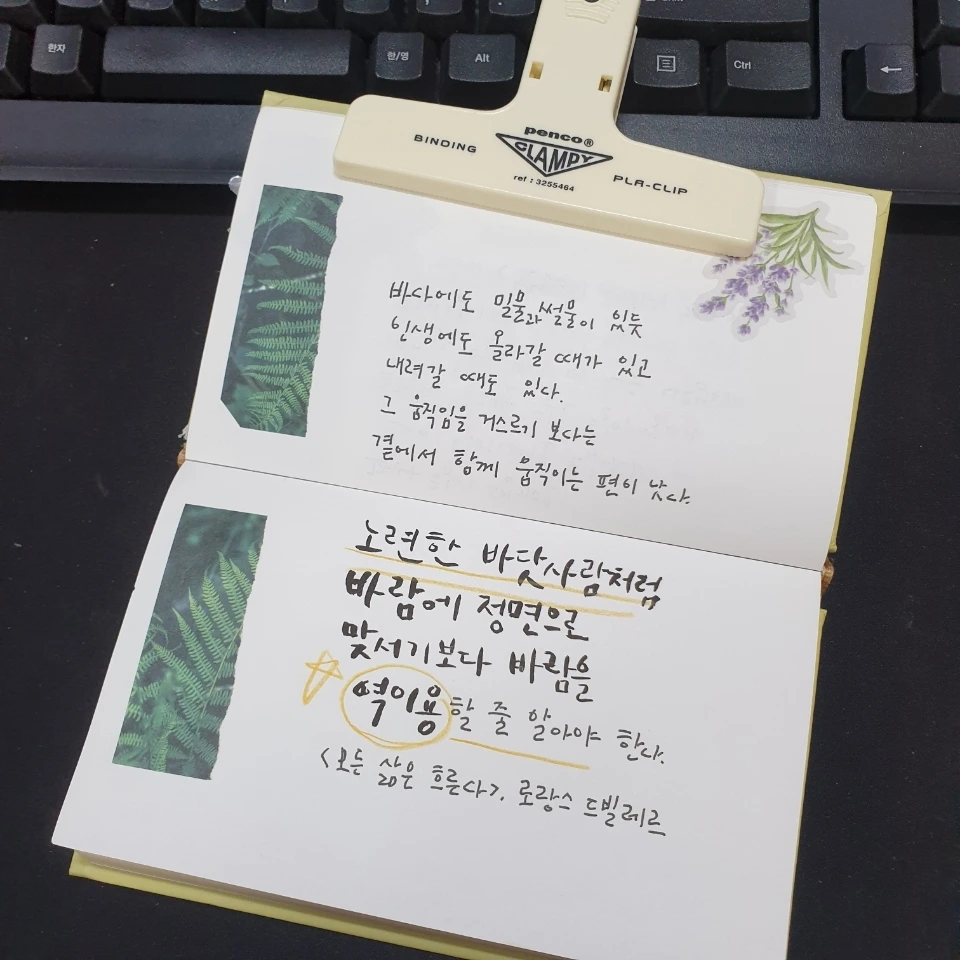 한자
한/영
Alt
Ctrl
penco®
BINDING CLAMPY PLA-CLIP
ref : 3255464
바다에도 밀물과 썰물이 있듯
인생에도 올라갈 때가 있고
내려갈 때도 있다.
그 움직임을 거스르기 보다는
곁에서 함께 움직이는 편이 낫다.
노련한 바닷사람처럼
바람에 정면으로
맞서기보다 바람을
역이용할 줄 알아야 한다.
<모든 삶은 흐른다>. 로랑스 드빌레르